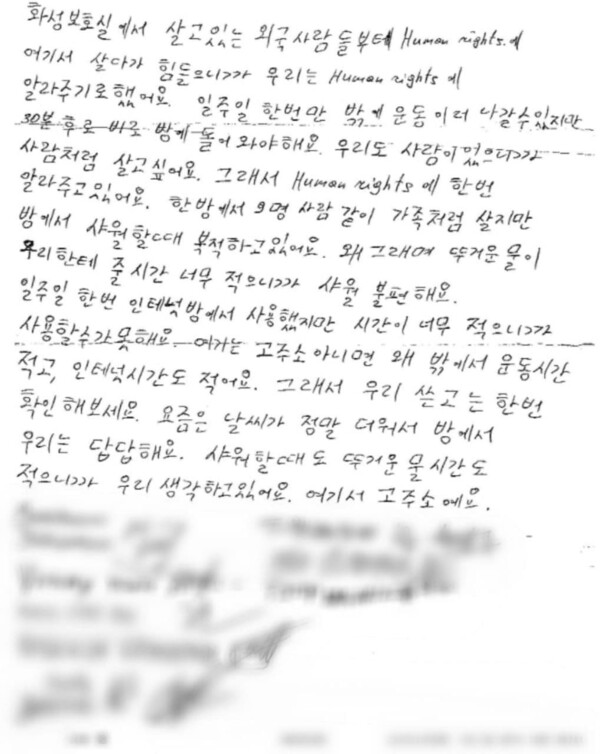 화성보호실에서 살고있는 외국사람들부터 Human rights.에
여기서 살다가 힘들으니까 우리는 Human rights 에
알라주기로했어요. 일주일 한번만 밖에 운동이러 나갈수있지만
30분후로 바로 방에 돌어와야해요. 우리도 사람이
사람처럼 살고싶어요. 그래서 Human rights 에 한번
알라주고있어요. 한방에서 9명 사람 같이 가족처럼 살지만
방에서 샤월할때 복적하고있어요. 왜그래며 뚜거운물이
우리한테 줄시간 너무 적으니까 샤월 불편해요.
일주일 한번 인테넷방에서 사용했지만 시간이 너무 적으니까
사용할수가못해요. 여가는 고주소아니면 왜 밖에서 운동시간
적고, 인테넷시간도 적어요. 그래서 우리 쓴고는 한번
확인해보세요. 요즘은 날씨가 정말 더워서 방에서
우리는 답답해요. 샤워할때도 뚜거운물시간도
적으니까 우리 생각하고있어요. 여기서 고주소예요.